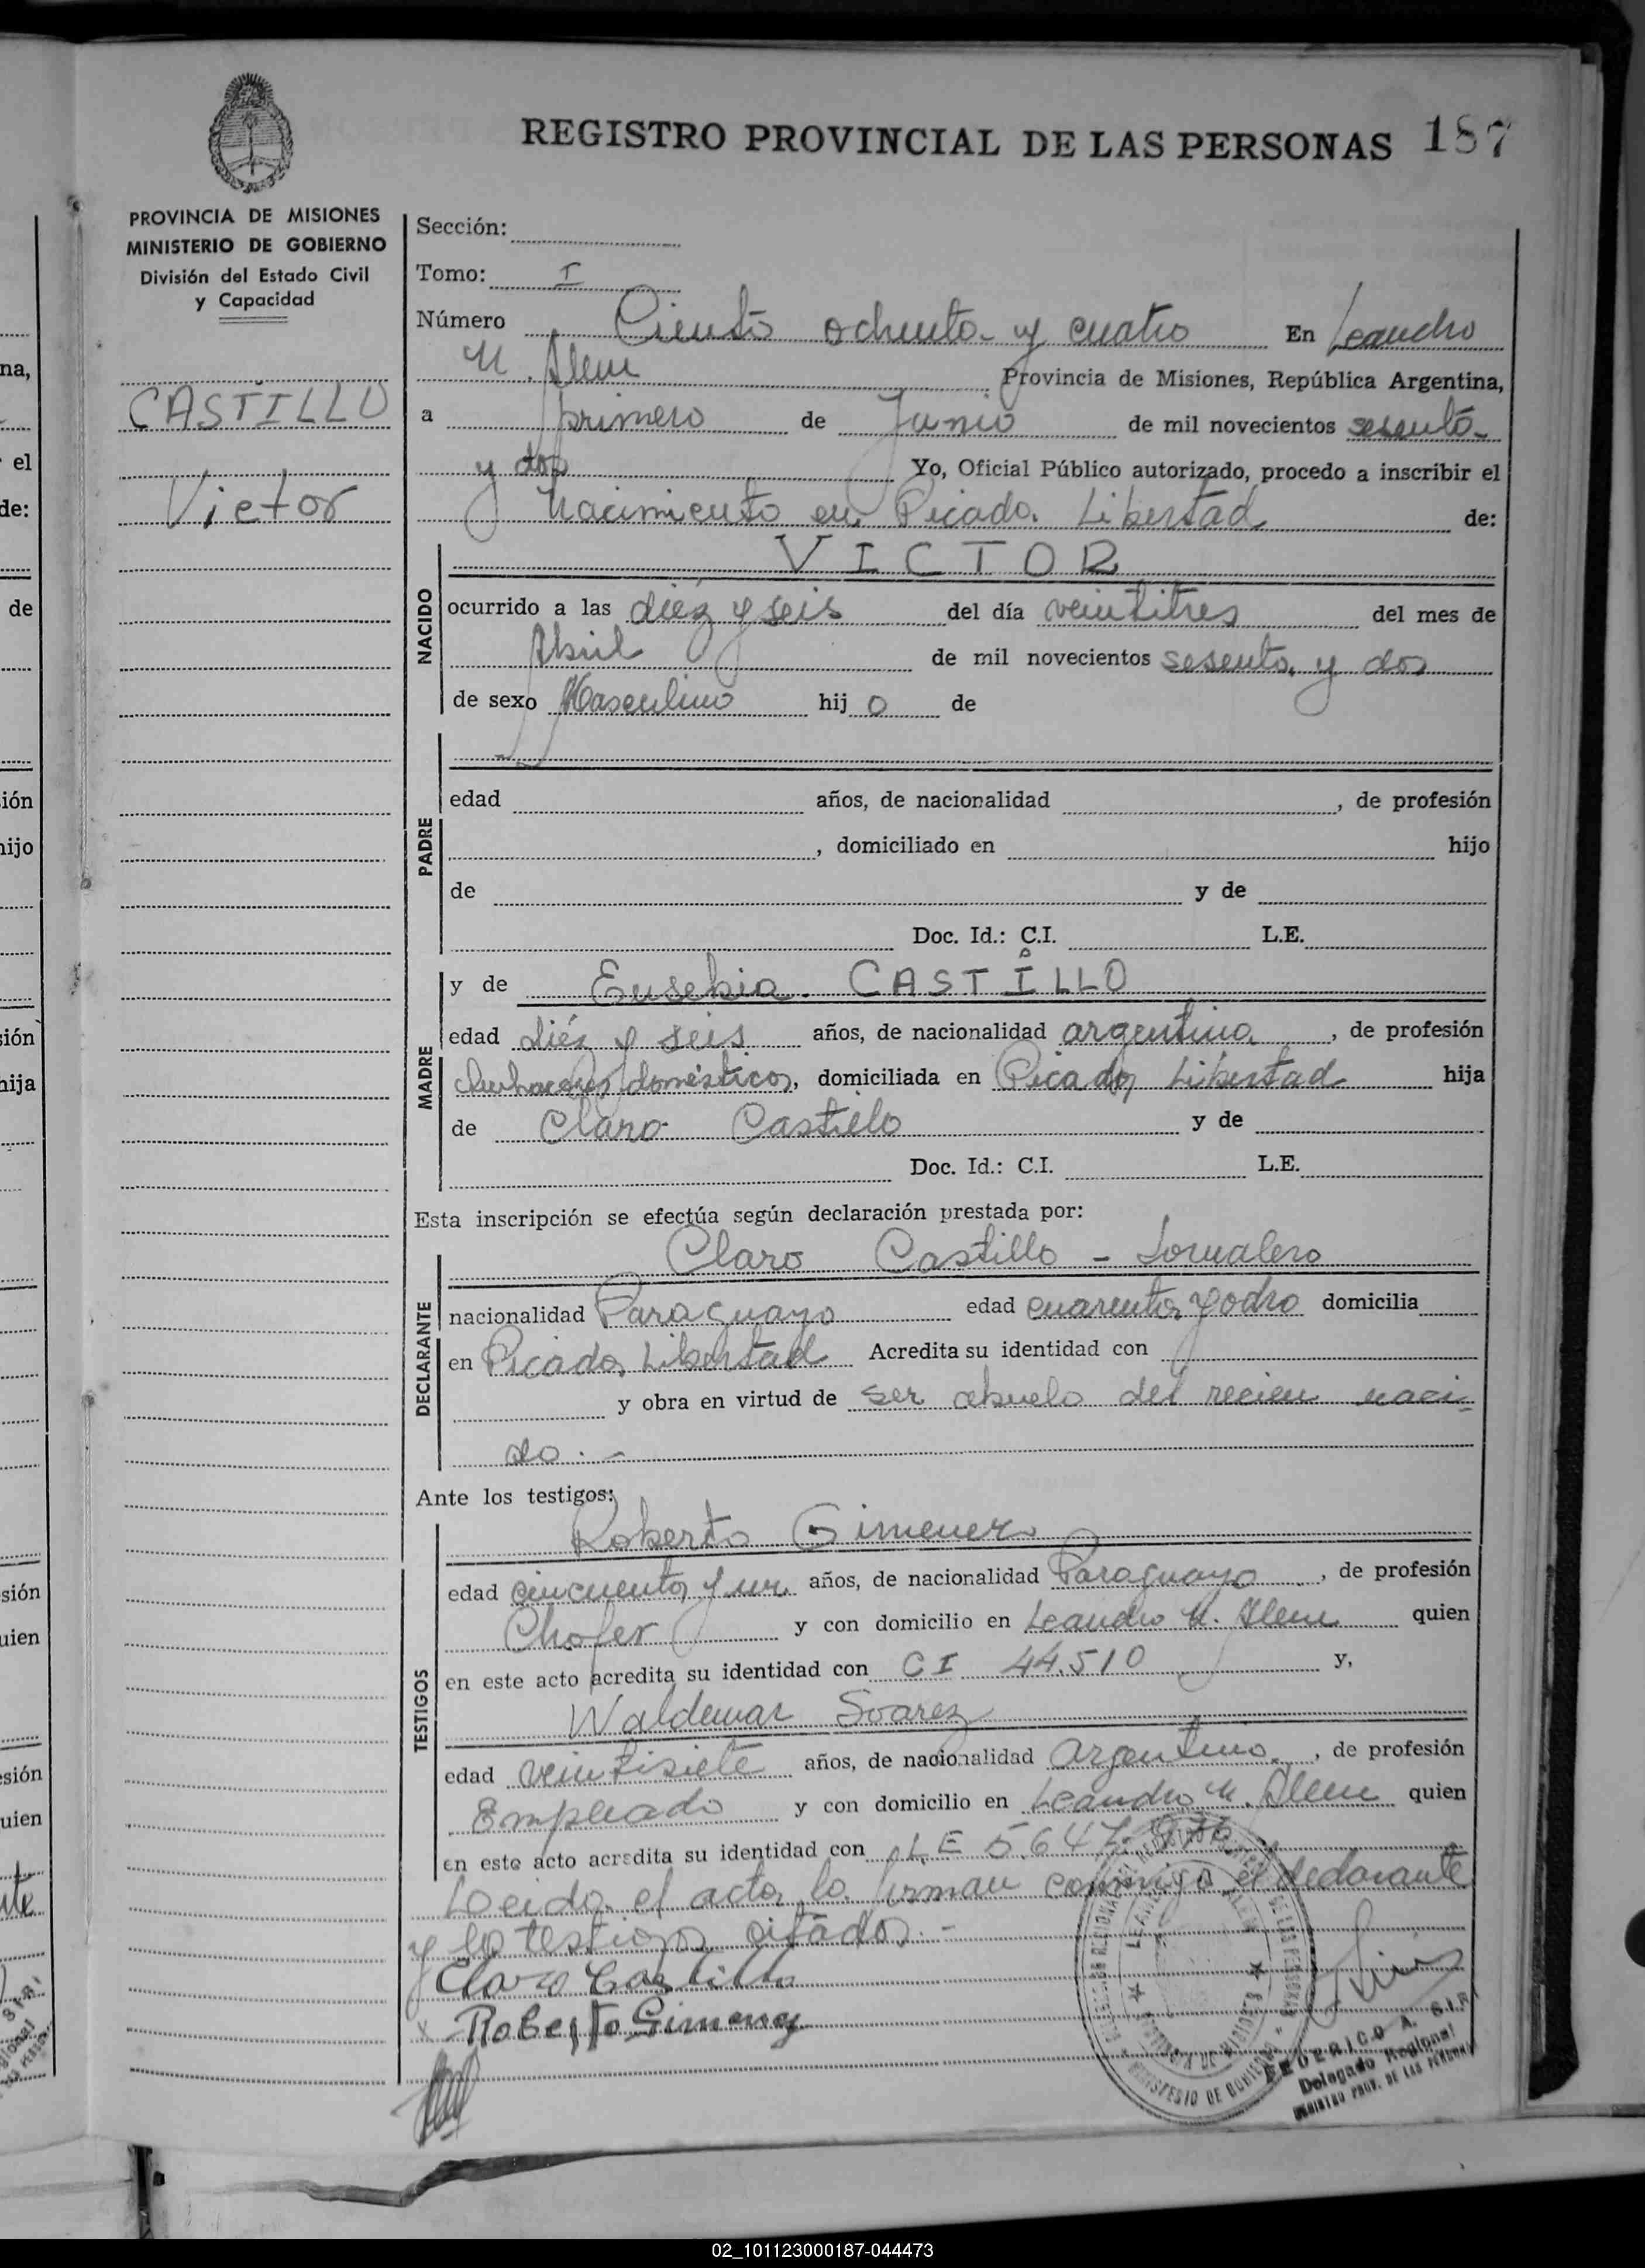 REGISTRO PROVINCIAL DE LAS PERSONAS 187
PROVINCIA DE MISIONES
MINISTERIO DE GOBIERNO
División del Estado Civil
y Capacidad
CASTILLO
Victor
Sección:
Tomo: I
Número Ciento ochenta y cuatro En Leandro
N. Alem Provincia de Misiones, República Argentina,
a primero de Junio de mil novecientos sesenta
y dos Yo, Oficial Público autorizado, procedo a inscribir el
Nacimiento en Picada Libertad de:
NACIDO
VICTOR
ocurrido a las diéz y seis del día veintitres del mes de
Abril de mil novecientos sesenta y dos
de sexo Masculino hij o de
PADRE
edad años, de nacionalidad , de profesión
, domiciliado en hijo
de y de
Doc. Id.: C.I. L.E.
MADRE
y de Eusebia CASTILLO
edad diéz y seis años, de nacionalidad argentina, de profesión
quehaceres domésticos, domiciliada en Picada Libertad hija
de Claro Castillo y de
Doc. Id.: C.I. L.E.
Esta inscripción se efectúa según declaración prestada por:
DECLARANTE
Claro Castillo - Jornalero
nacionalidad Paraguayo edad cuarenta y ocho domicilia
en Picada Libertad Acredita su identidad con
y obra en virtud de ser abuelo del recien naci-
do.-
Ante los testigos:
TESTIGOS
Roberto Gimenez
edad cincuenta y un años, de nacionalidad Paraguayo, de profesión
Chofer y con domicilio en Leandro N. Alem quien
en este acto acredita su identidad con CI 44.510 y,
Waldemar Soarez
edad veintisiete años, de nacionalidad Argentino, de profesión
Empleado y con domicilio en Leandro N. Alem quien
en este acto acredita su identidad con LE 5.647
Leida el acta, la firman conmigo el declarante
y los testigos citados.-
Claro Castillo
Roberto Gimenez
FEDERICO A.
Delegado Regional
REGISTRO PROV. DE LAS PERSONAS
MINISTERIO DE GOBIERNO
02_101123000187-044473